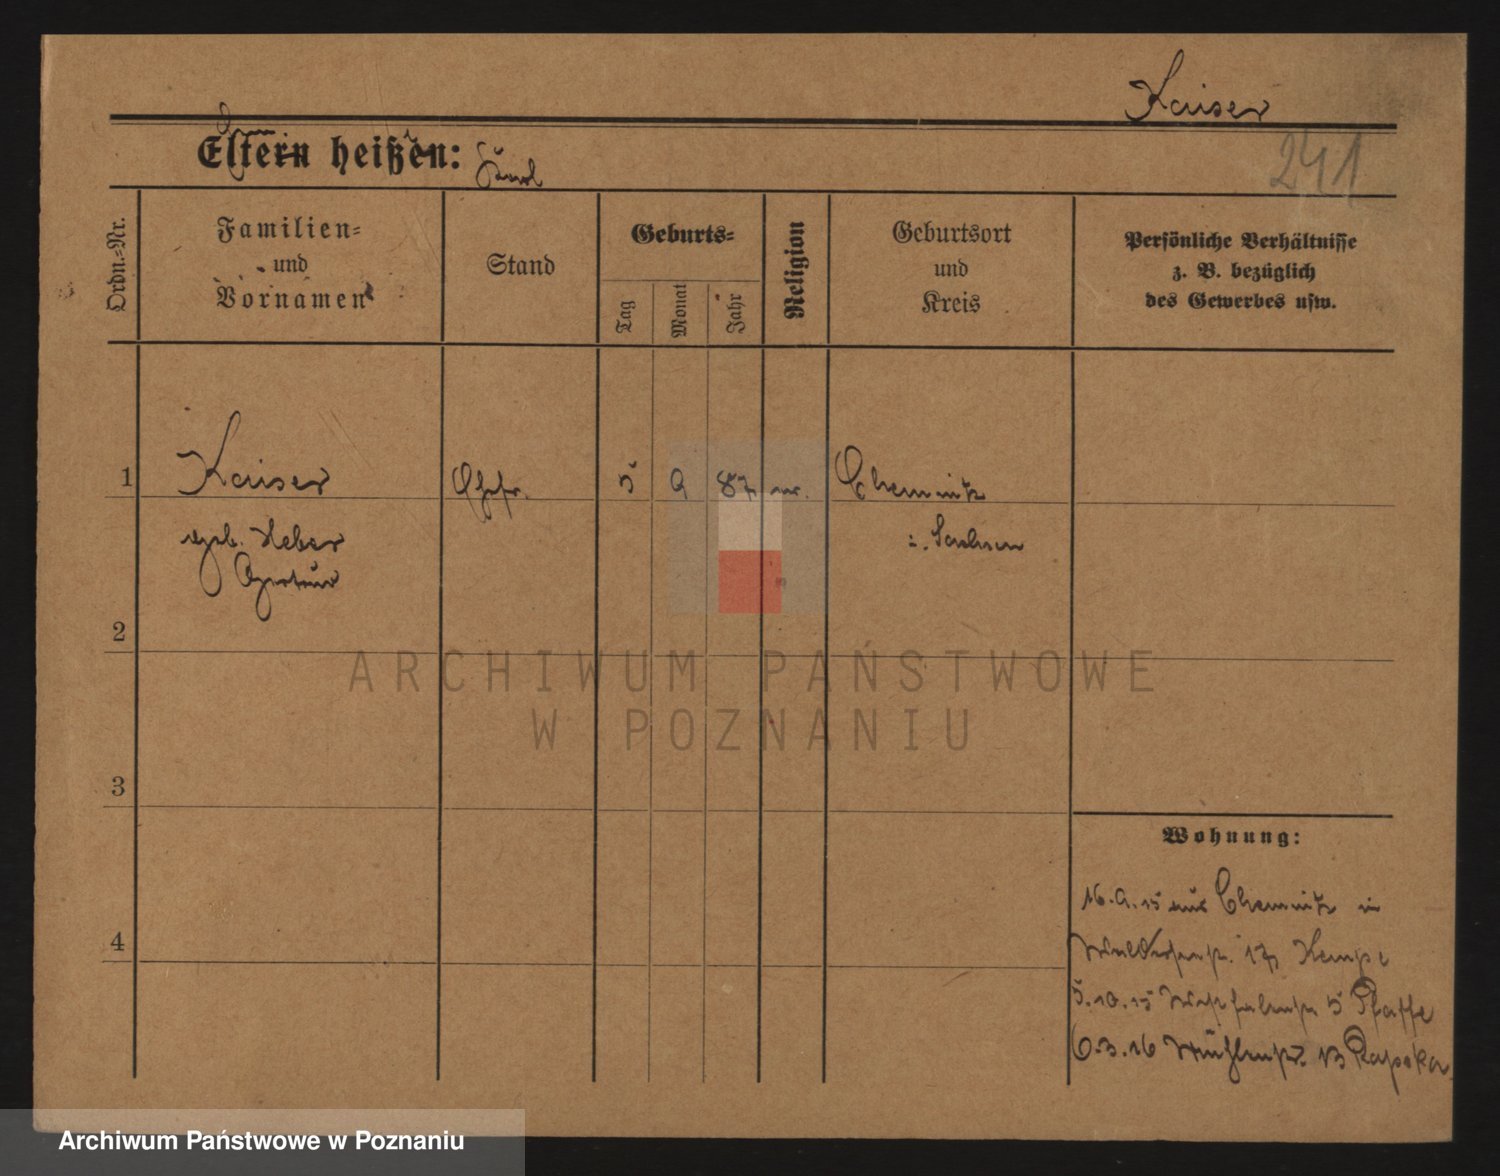 Kaiser
Eltern heißen:
241
Ordn.-Nr.
Familien-
und
Vornamen
Stand
Geburts-
Tag
Monat
Jahr
Religion
Geburtsort
und
Kreis
Persönliche Verhältnisse
z. B. bezüglich
des Gewerbes usw.
1
Kaiser
Ehefr.
5
9
87
ev.
Chemnitz
geb. Heber
i. Sachsen
Gertrud
2
ARCHIWUM PAŃSTWOWE
W POZNANIU
3
Wohnung:
16.9.15 aus Chemnitz in
4
17
5.10.15 5 Pfaffe
6.3.16 Mühlenstr. 13
Archiwum Państwowe w Poznaniu